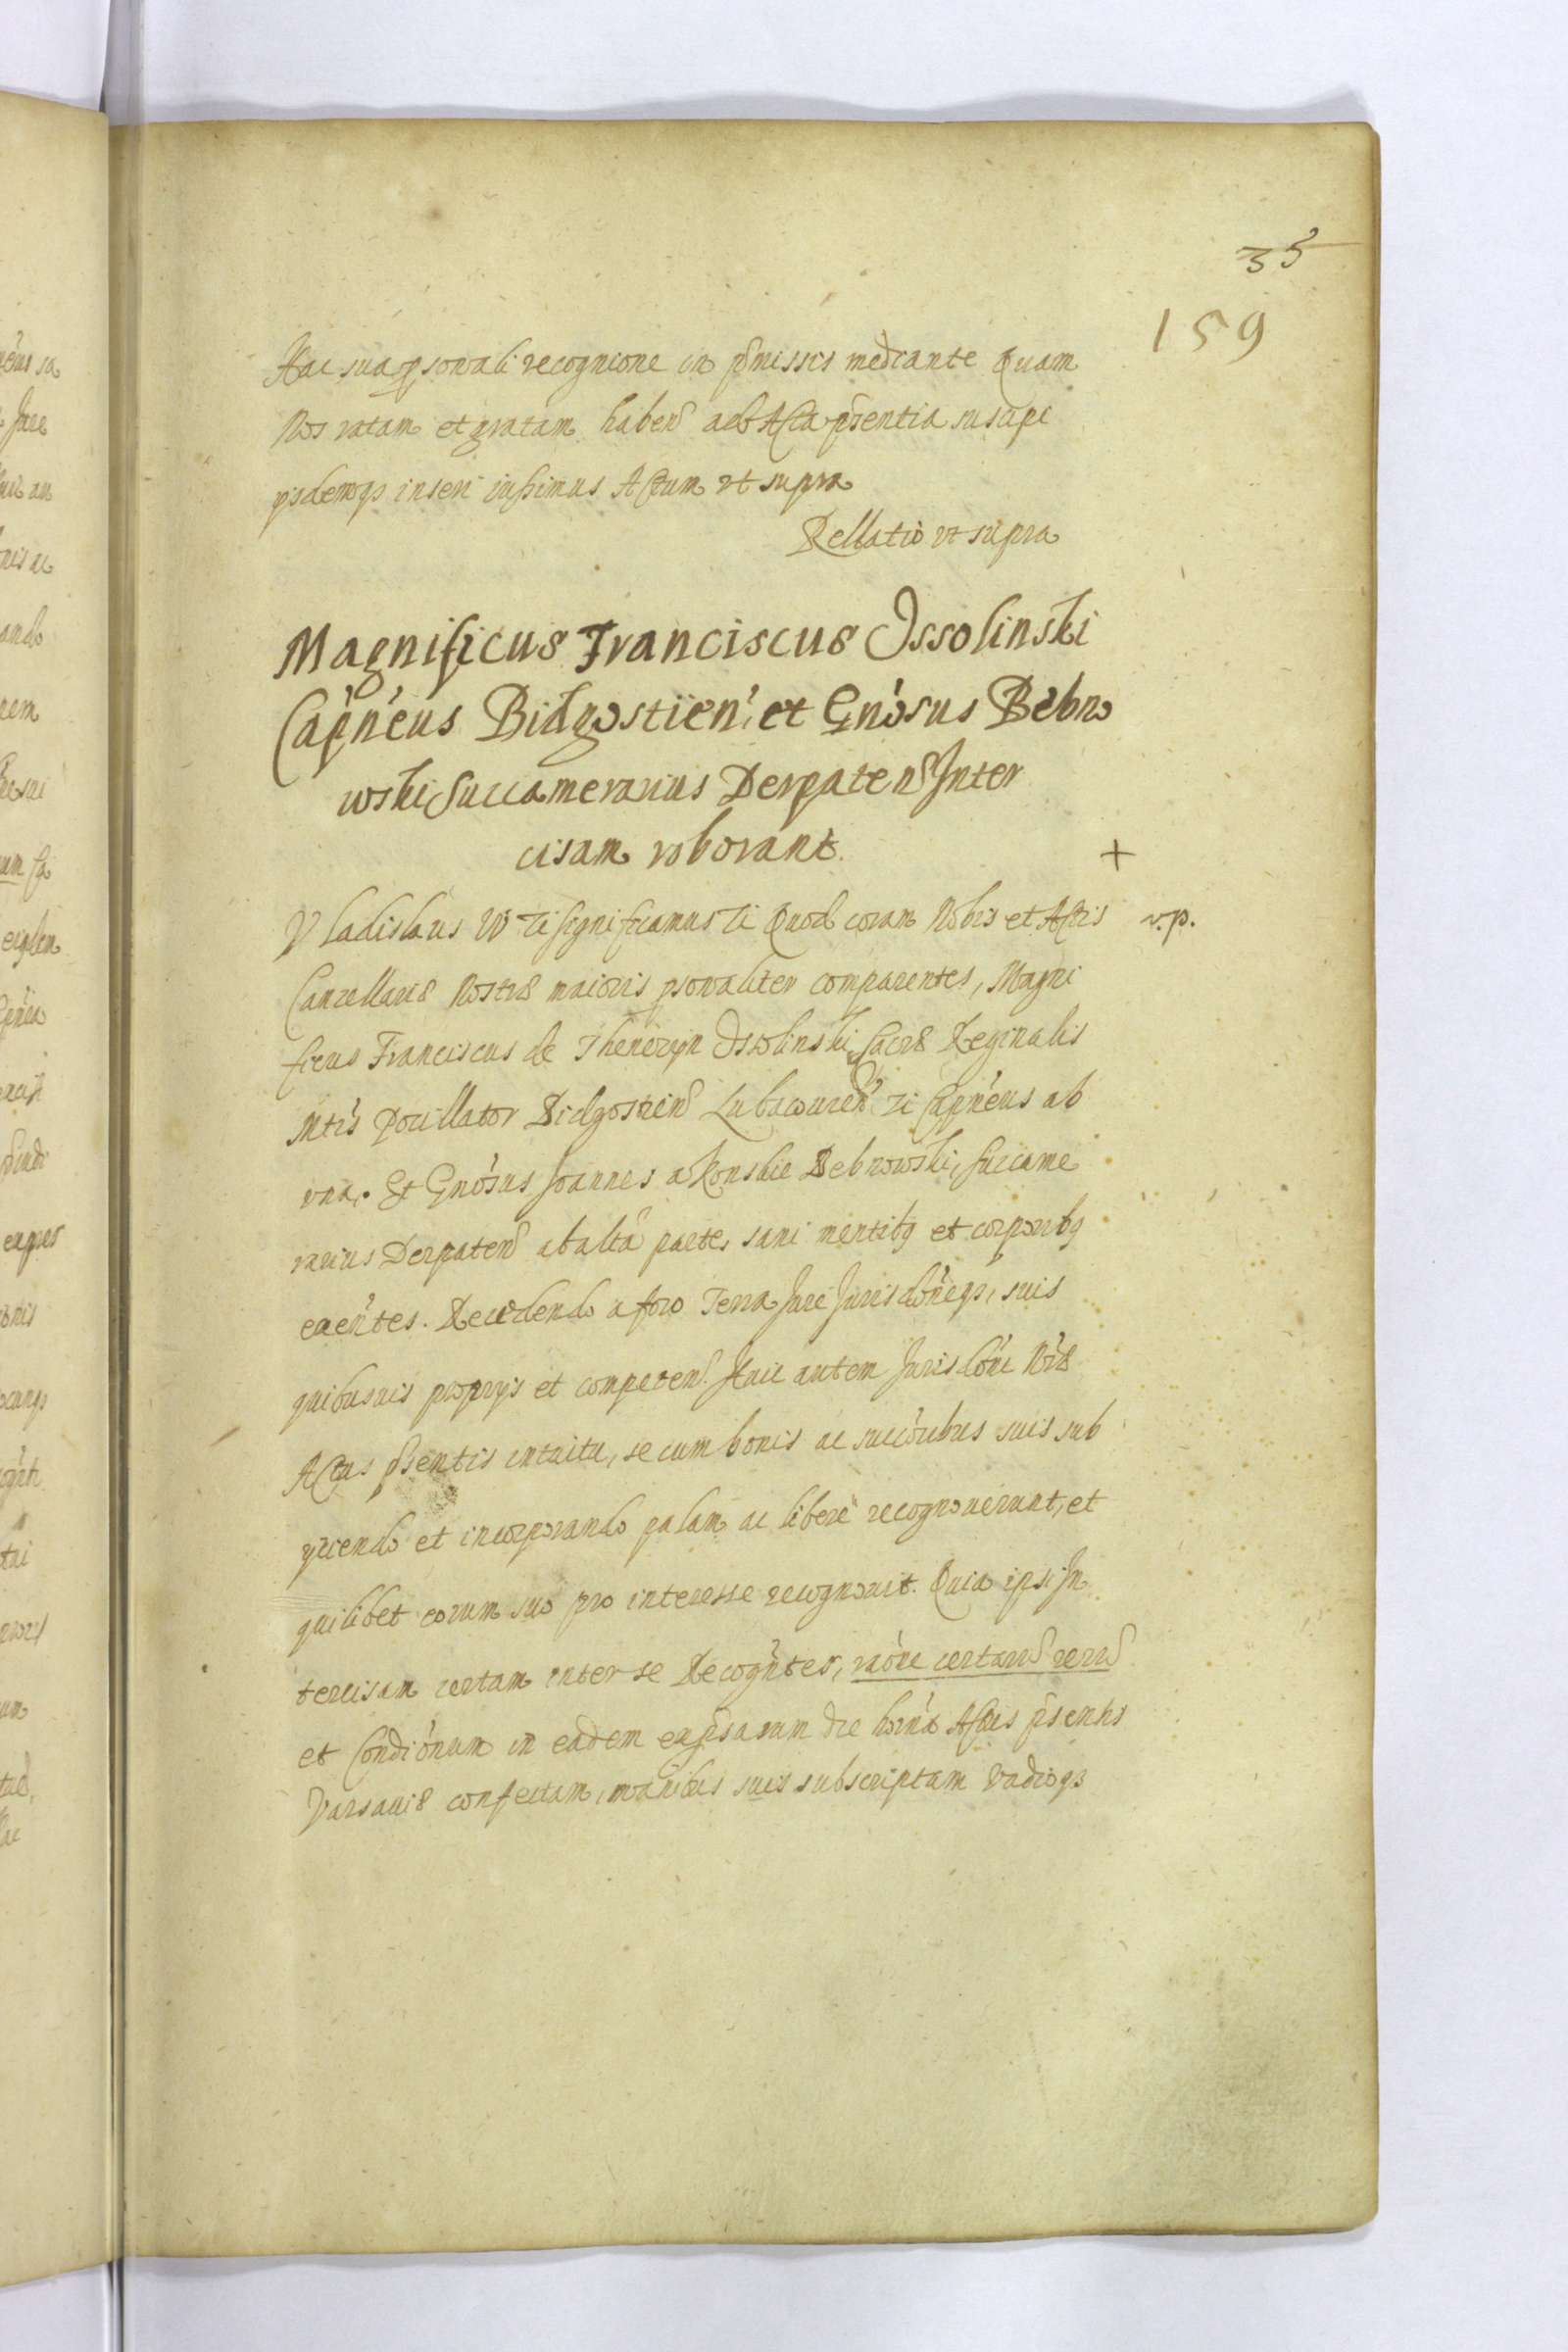 35
159
Hac sua psonali recognione in pmissis mediante Quam
Nos ratam et gratam habens ad Acta psentia suscipi
ijsdemq3 inseri iussimus Actum vt supra
Rellatio vt supra
Magnificus Franciscus Ossolinski
Capneus Bidgostien et Gnosus Debro
wski Succamerarius Derpatens Inter
cisam roborant.
+
Vladislaus IV etc significamus etc Quod coram Nobis et Actis
v.p.
Cancellariae Nostrae maioris psonaliter comparentes, Magni
ficus Franciscus de Thenczyn Ossolinski, Sacrae Reginalis
Mtis Pocillator Bidgostiens etc Capneus ab
vna. Et Gnosus Joannes a Konskie Debrowski, Succame
rarius Derpatens ab alta partes sani mentibq et corporibq
exentes. Recedendo a foro Terra Jure Jurisdoneq3, suis
quibusuis proprijs et competens. Huic autem Jurisdoni Nrae
Actus psentis intuitu, se cum bonis ac succoribus suis sub
yciendo et incorporando palam ac libere recognouerunt, et
quilibet eorum suo pro interesse recognouit. Quia ipsi In
tercisam certam inter se Recogntes, raone certarus rerus
et Condionum in eadem expsarum die horna Actus psentis
Varsauiae confectam, manibus suis subscriptam Vadioq3